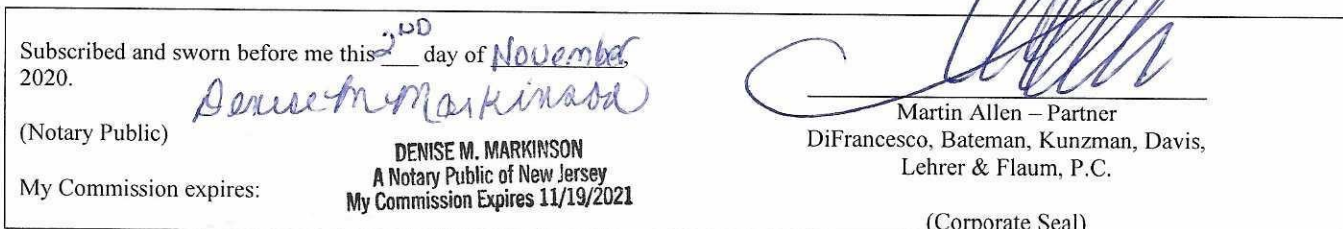 Subscribed and sworn before me this 2ND day of November,
2020.
Denise M Markinson
(Notary Public)
DENISE M. MARKINSON
A Notary Public of New Jersey
My Commission Expires 11/19/2021
My Commission expires:
Martin Allen – Partner
DiFrancesco, Bateman, Kunzman, Davis,
Lehrer & Flaum, P.C.
(Corporate Seal)